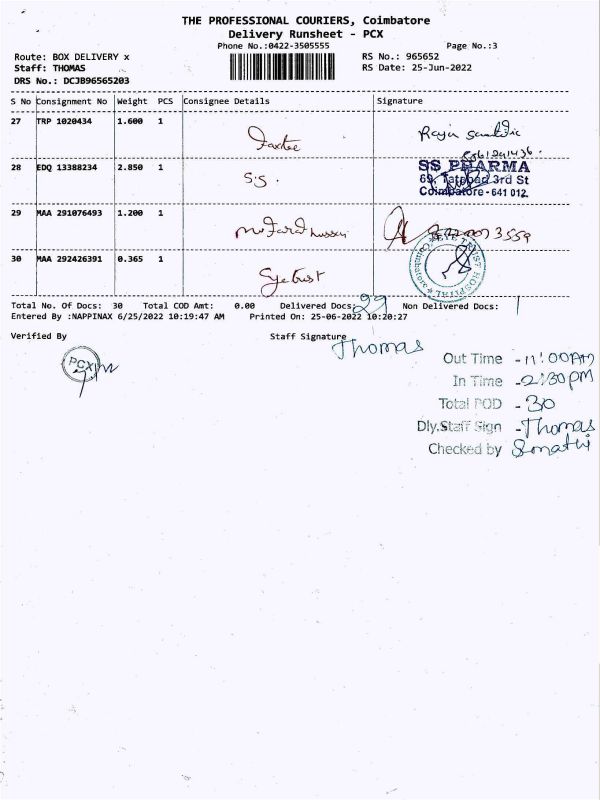 THE PROFESSIONAL COURIERS, Coimbatore
Delivery Runsheet - PCX
Phone No.:0422-3505555 Page No.:3
Route: BOX DELIVERY x RS No.: 965652
Staff: THOMAS RS Date: 25-Jun-2022
DRS No.: DCJB96565203
S No Consignment No Weight PCS Consignee Details Signature
27 TRP 1020434 1.600 1
28 EDQ 13388234 2.850 1 S.S. SS PHARMA
Coimbatore - 641 012.
29 MAA 291076493 1.200 1
30 MAA 292426391 0.365 1
Total No. Of Docs: 30 Total COD Amt: 0.00 Delivered Docs: 29 Non Delivered Docs: 1
Entered By :NAPPINAX 6/25/2022 10:19:47 AM Printed On: 25-06-2022 10:20:27
Verified By Staff Signature Thomas
PCX
Out Time - 11:00AM
In Time - 2:30PM
Total POD - 30
Dly.Staff Sign - Thomas
Checked by